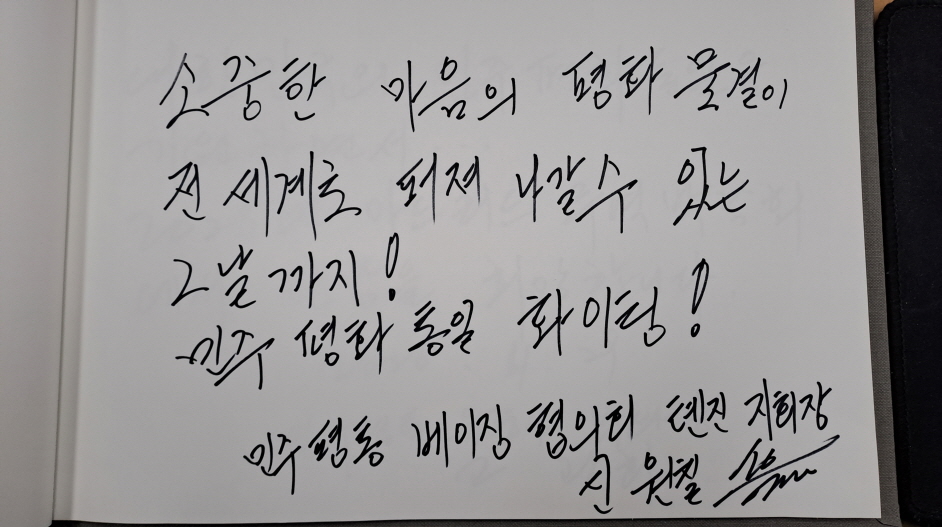 소중한 마음의 평화 물결이
전 세계로 퍼져 나갈수 있는
그날까지!
민주 평화 통일 화이팅!
민주평통 베이징 협의회 텐진 지회장
신 원철